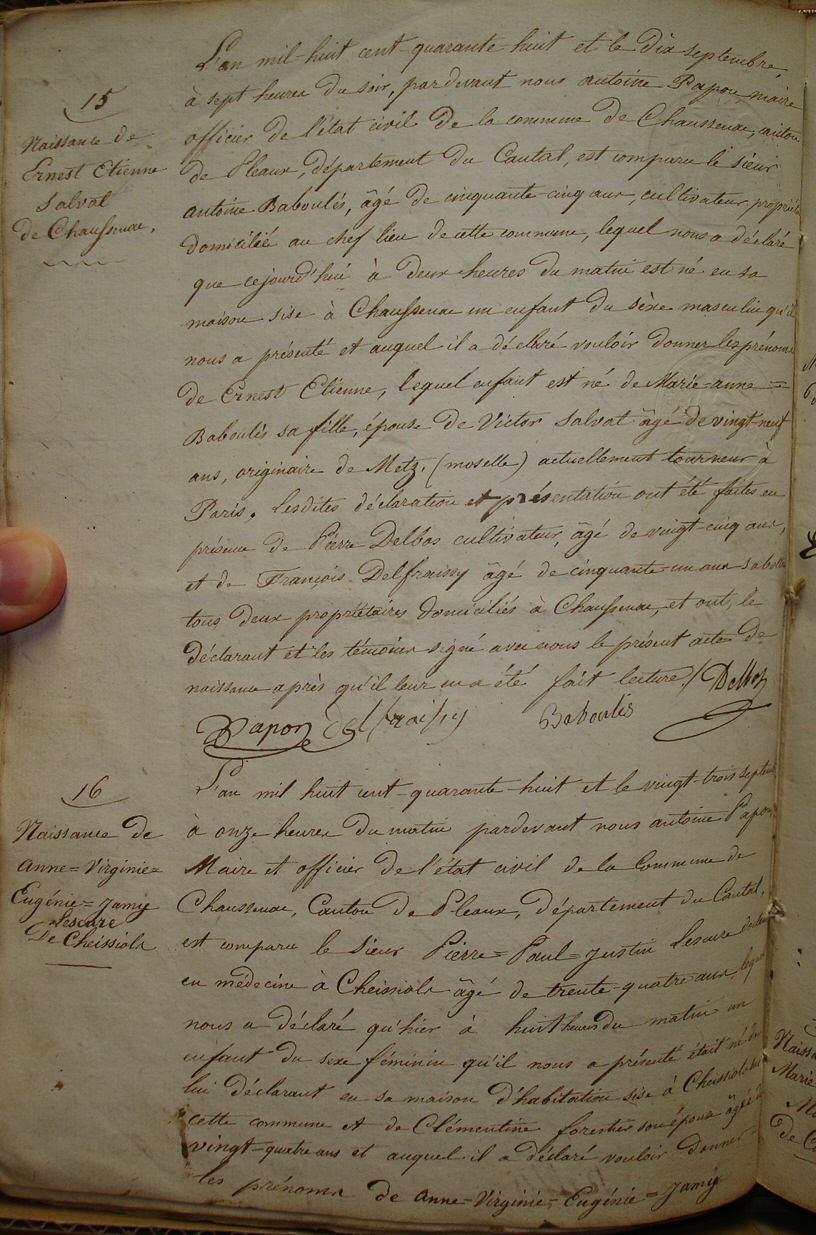 15
Naissance de
Ernest Etienne
Salvat
de Chaussenac,
L'an mil huit cent quarante huit et le dix septembre,
à sept heures du soir, pardevant nous antoine Papon maire
officier de l'état civil de la commune de Chaussenac, canton
de Pleaux, département du Cantal, est comparu le sieur
antoine Baboulès, âgé de cinquante-cinq ans, cultivateur
domicilié au chef lieu de cette commune, lequel nous a déclaré
que cejourd'hui à deux heures du matin est né en sa
maison sise à Chaussenac un enfant du sèxe masculin qu'il
nous a présenté et auquel il a déclaré vouloir donner les prénoms
de Ernest Etienne, lequel enfant est né de Marie-anne =
Baboulès sa fille, épouse de Victor Salvat âgé de vingt neuf
ans, originaire de Metz, (moselle) actuellement tourneur à
Paris. Lesdites déclaration et présentation ont été faites en
présence de Pierre Delbos cultivateur, âgé de vingt-cinq ans,
et de François Delfraissy âgé de cinquante-un ans
tous deux propriétaires domiciliés à Chaussenac, et ont, le
déclarant et les témoins signé avec nous le présent acte de
naissance après qu'il leur en a été fait lecture / Delbos
Papon delfraissy Baboulès
16
Naissance de
Anne=Virginie=
Eugénie=Jamy
Lescure
De Cheissiols
L'an mil huit cent quarante-huit et le vingt-trois septembre
à onze heures du matin pardevant nous antoine Papon
Maire et officier de l'état civil de la Commune de
Chaussenac, Canton de Pleaux, département du Cantal,
est comparu le sieur Pierre=Paul=Justin Lescure docteur
en médecine à Cheissiols âgé de trente-quatre ans, lequel
nous a déclaré qu'hier à huit heures du matin un
enfant du sexe féminin qu'il nous a présenté était né de
lui déclarant en sa maison d'habitation sise à Cheissiols
cette commune et de Clémentine forestier son épouse âgée de
vingt-quatre ans et auquel il a déclaré vouloir donner
les prénoms de Anne-Virginie-Eugénie=Jamy